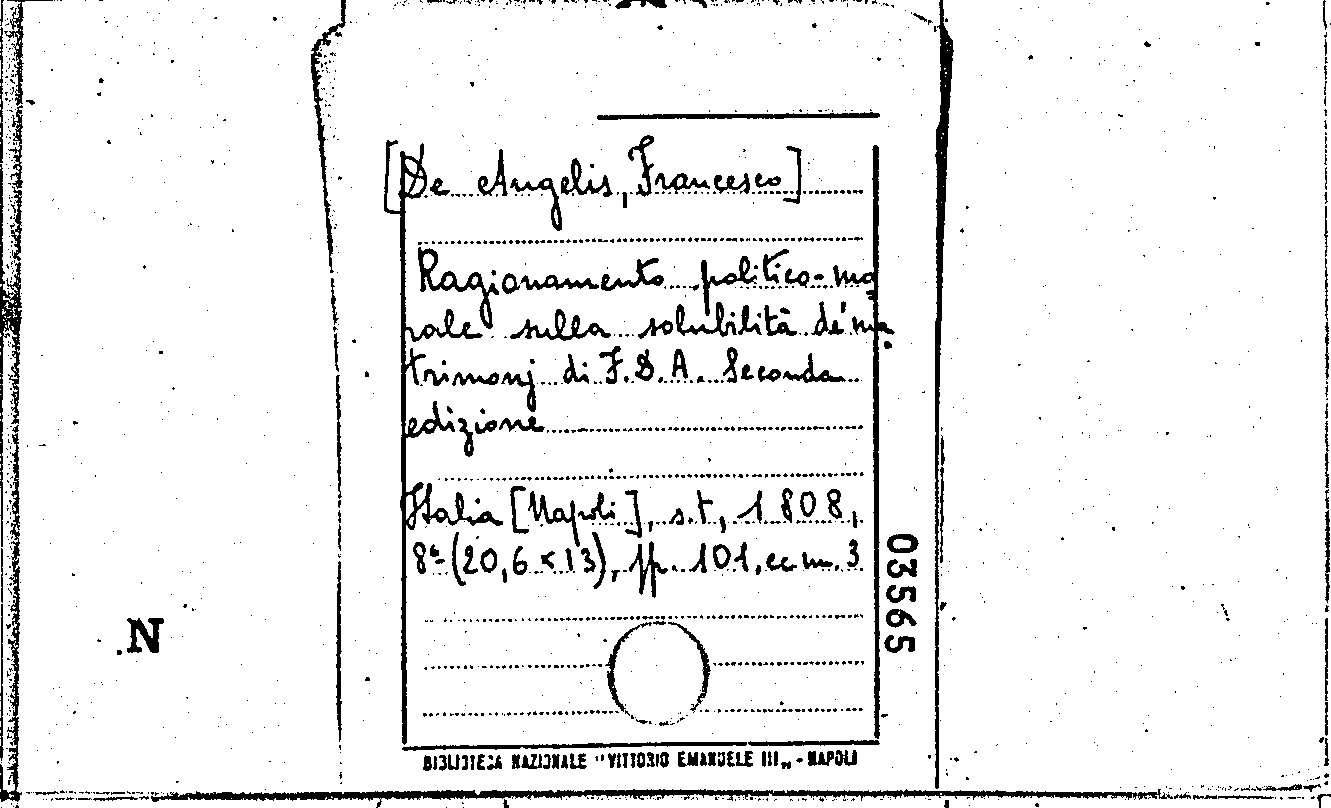 [De Angelis, Francesco]
Ragionamento politico-mo
rale sulla solubilità de' ma
trimonj di F.D.A. Seconda
edizione
Italia [Napoli], s.t, 1808,
8º (20,6 x 13), pp. 101, cc m. 3
03565
.N
BIBLIOTECA NAZIONALE "VITTORIO EMANUELE III„ - NAPOLI